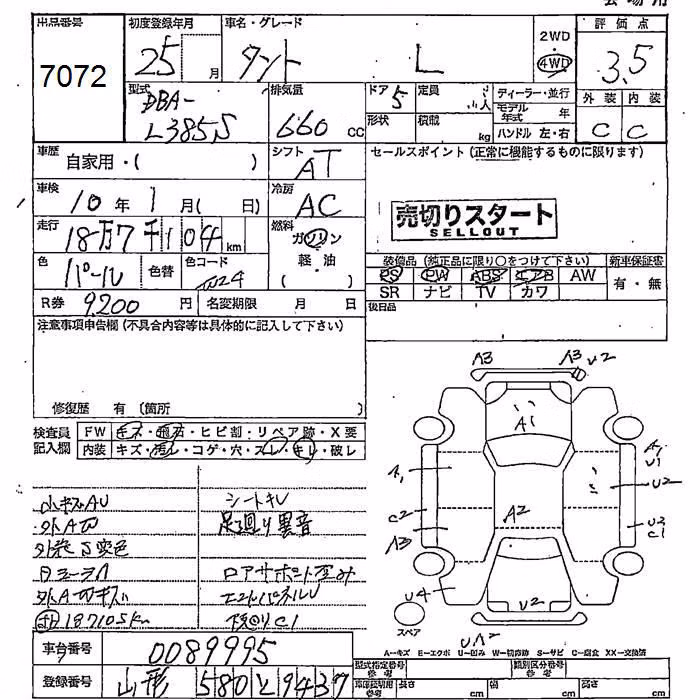 出品番号 初度登録年月 車名・グレード 2WD 評価点
7072 25 月 タント L 4WD 3.5
型式 排気量 ドア 定員 ディーラー・並行 外装 内装
DBA- 5 人 モデル年式 年 C C
L385S 660 cc 形状 積載 kg ハンドル 左・右
車歴 自家用・( ) シフト AT セールスポイント(正常に機能するものに限ります)
車検 10年 1月( 日) 冷房 AC
売切りスタート
SELLOUT
走行 18万7千104km 燃料 ガソリン
軽・油
( )
色 パール 色替 色コード W24
装備品(純正品に限り○をつけて下さい) 新車保証書
PS PW ABS エアB AW 有・無
SR ナビ TV カワ
R券 9200円 名変期限 月 日 後日品
注意事項申告欄(不具合内容等は具体的に記入して下さい)
修復歴 有(箇所 )
検査員 FW キズ・飛石・ヒビ割・リペア跡・X要
記入欄 内装 キズ・汚レ・コゲ・穴・スレ・キレ・破レ
小キズAU シートキレ
外A 足廻り異音
外装S変色
ロアサポート歪み
外A キズ エンドパネルU
187105km 後廻りC1
A3 A3 U2
A1
A1 A1 U1
U2
C2 A2 U2 C1
A3
U4 U2
スペア
UA2
A-キズ E-エクボ U-凹み W-切修跡 S-サビ C-腐食 XX-交換済
車台番号 0089995
登録番号 山形 580 と 9437
型式指定番号 参考 類別区分番号 参考
参考 長さ cm 幅 cm 高さ cm